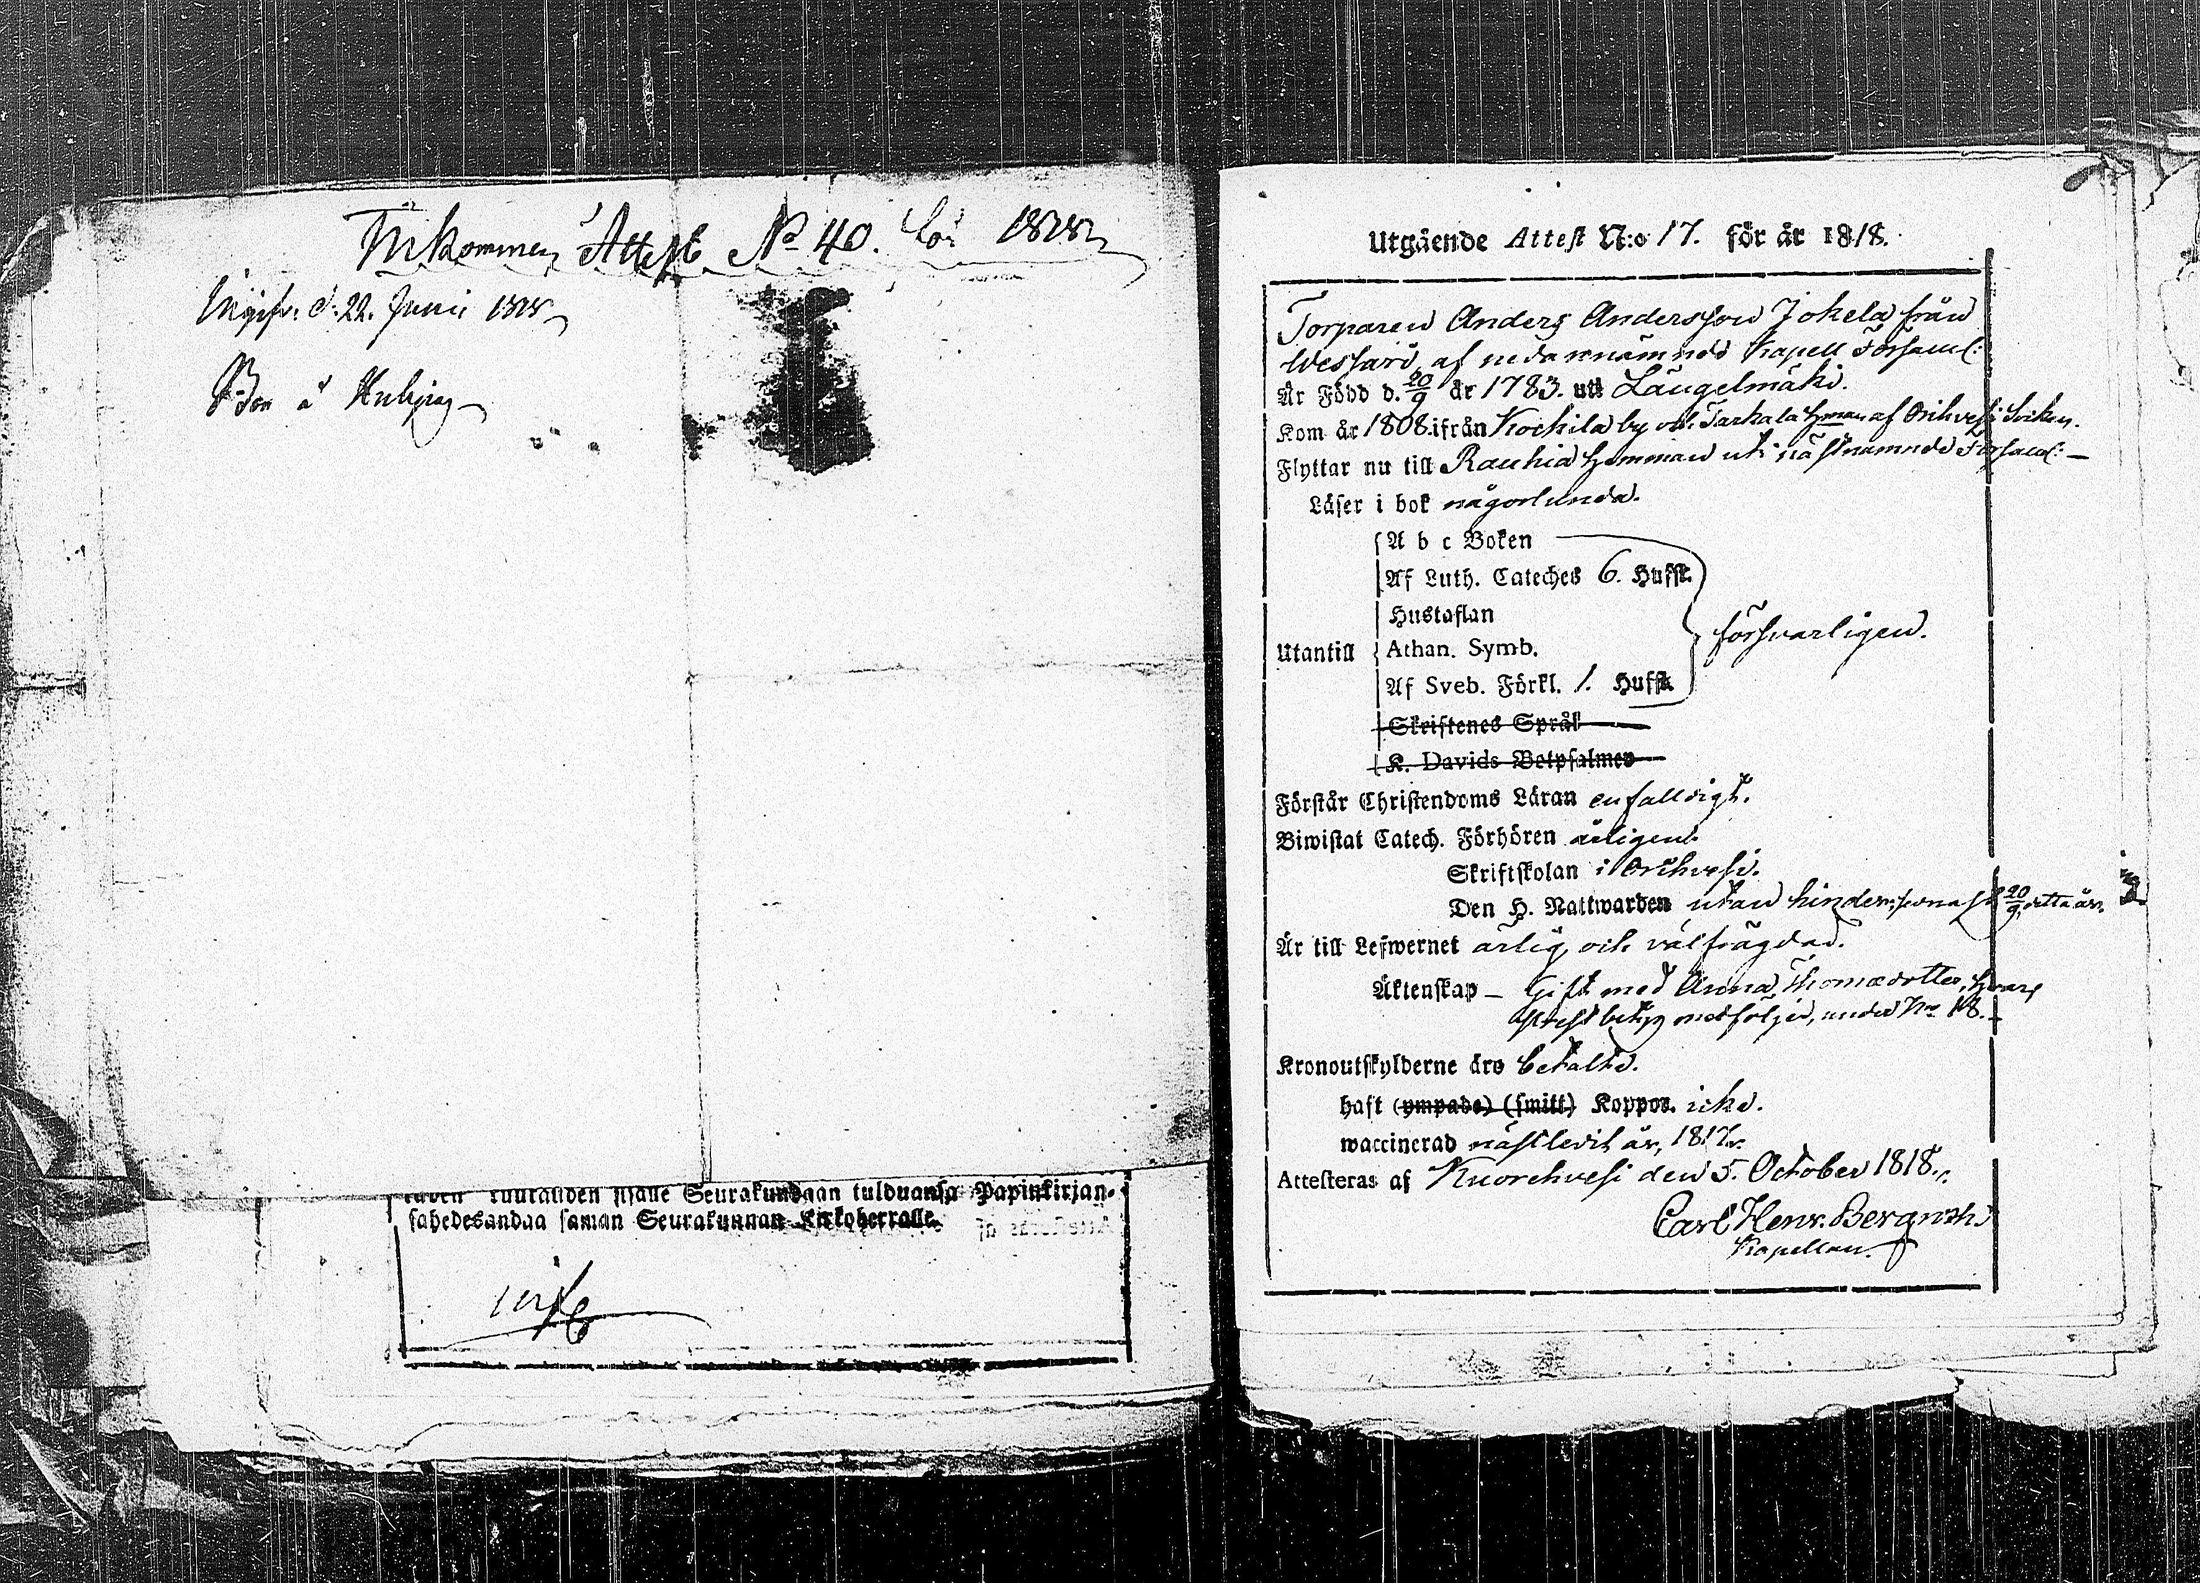 Inkommen Attest No 40. för 1818
d. 22. Junii 1818
Utgående Attest N:o 17. för år 1818.
Torparen Anders Andersson Jokela från
Wessari, af nedannämnde Kapell Församl:
Är Född d. 20/9 år 1783. uti Längelmäki.
Kom år 1808. ifrån Kockila by och Tarkala Hman af Orihvesi Socken.
Flyttar nu till Rauhia Hemman uti nästnämnde Församl: –
Läser i bok någorlunda.
A b c Boken
Af Luth. Cateches 6. Hufst.
Hustaflan
Utantill Athan. Symb. försvarligen.
Af Sveb. Förkl. 1. Hufst.
Skriftenes Språk
K. Davids Botpsalmer
Förstår Christendoms Läran enfalldigt.
Biwistat Catech. Förhören årligen.
Skriftskolan i Orihvesi.
Den H. Nattwarden utan hinder, senast 20/9 detta år.
Är till Lefwernet ärlig och välfrägdad.
Äktenskap – Gift med Anna Thomædotter, hvars
attest betyg medföljer, under No 18. –
Kronoutskylderne äro betalte.
haft (ympade) (smitt) Koppor. icke.
waccinerad nästledit år, 1817.
Attesteras af Kuorehvesi den 5. October 1818.
Carl Henr. Bergroth
Kapellan.
sisälle Seurakundaan tulduansa Papinkirjan-
sahedesandaa saman Seurakunnan Kirkoherralle.